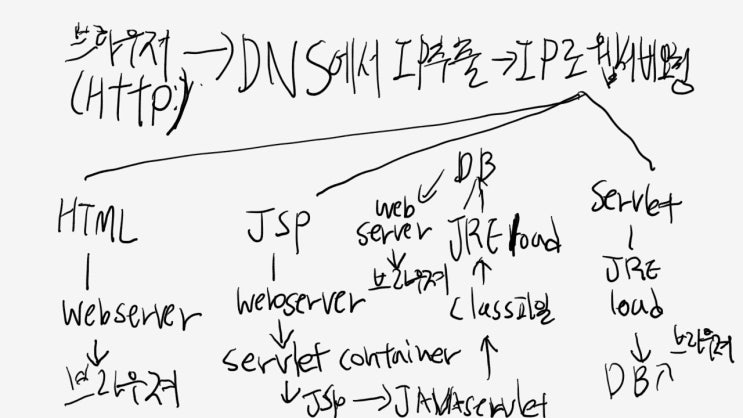 브라우저 → DNS에서 IP추출 → IP로 웹서버요청
(HTTP:)
HTML
webserver
브라우져
JSP
webserver
servlet container
JSP → JAVAservlet
class파일
JRE load
DB
web
server
브라우져
Servlet
JRE
load
DB 브라우져